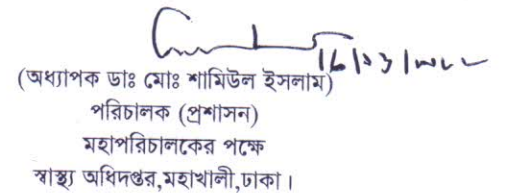 (অধ্যাপক ডাঃ মোঃ শামিউল ইসলাম)
পরিচালক (প্রশাসন)
মহাপরিচালকের পক্ষে
স্বাস্থ্য অধিদপ্তর,মহাখালী,ঢাকা।